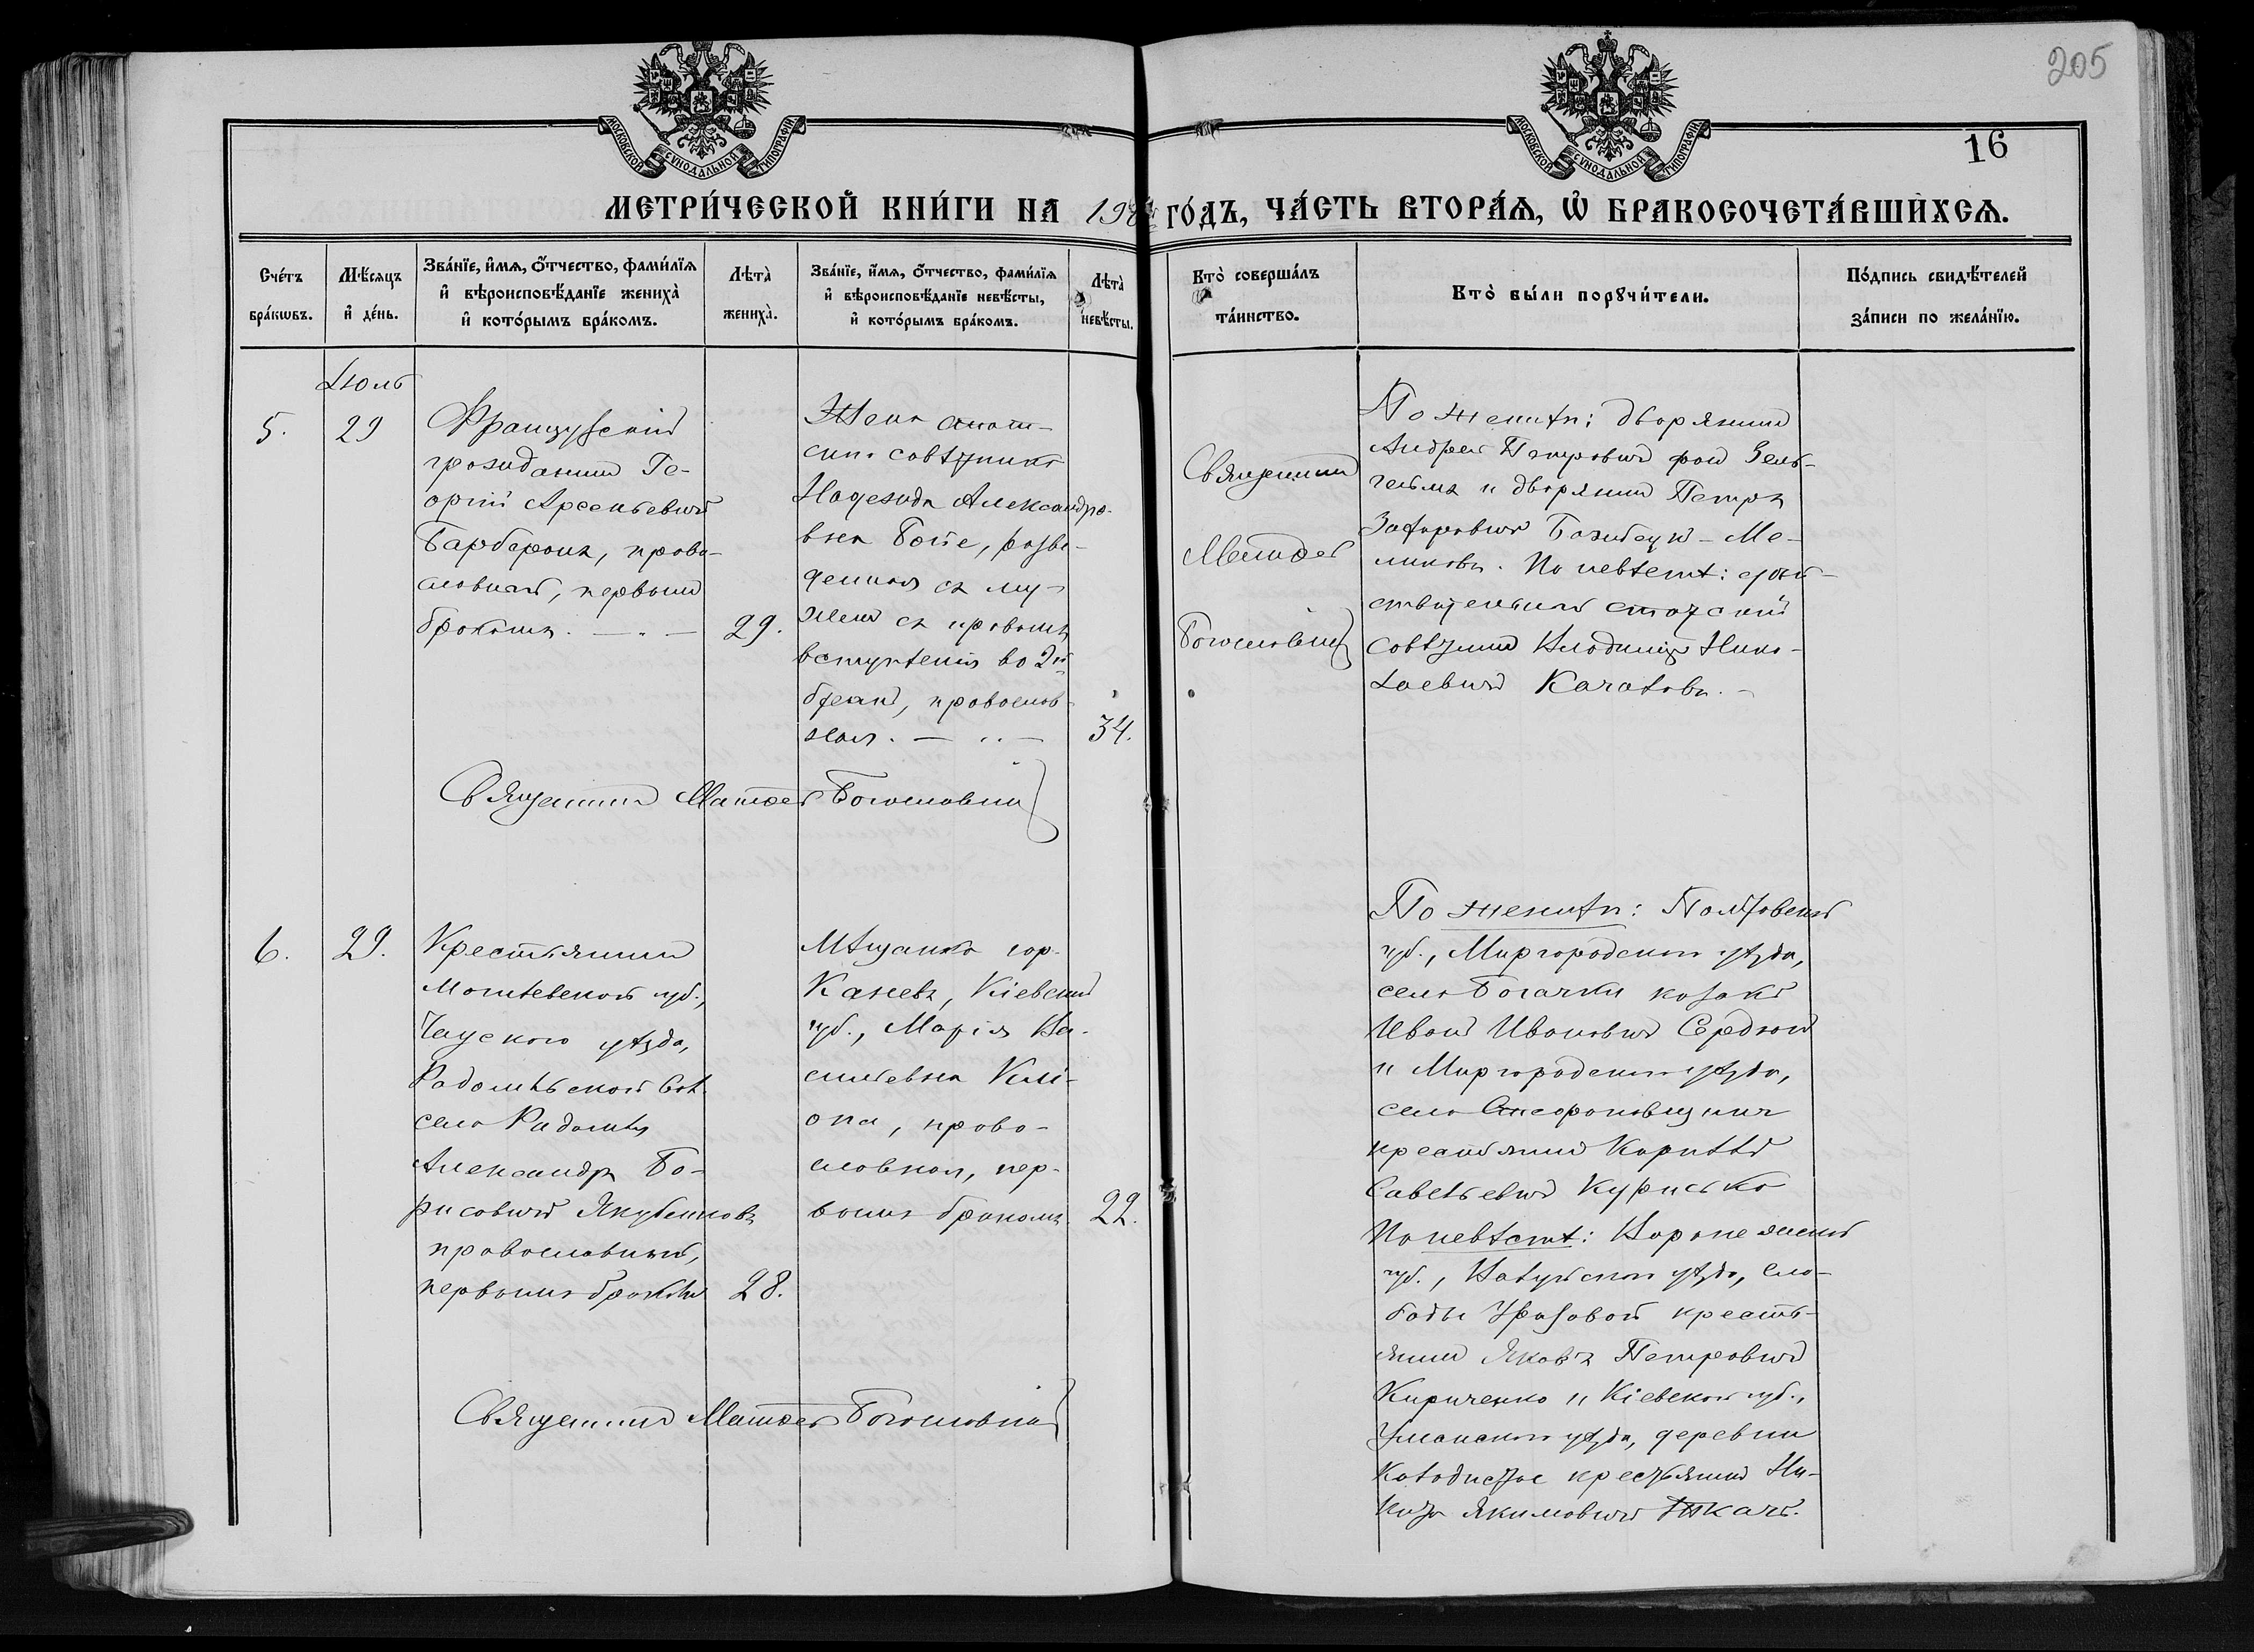 205
16
МОСКОВСКОЙ СУНОДАЛЬНОЙ ТИПОГРАФІИ
МОСКОВСКОЙ СУНОДАЛЬНОЙ ТИПОГРАФІИ
МЕТРИ́ЧЕСКОЙ КНИ́ГИ НА 198 ГО́ДЪ, ЧА́СТЬ ВТОРА́Ѧ, Ѡ҆ БРАКОСОЧЕТА́ВШИХСѦ.
Сче́тъ бра́кѡвъ.
Мѣ́сяцъ и҆ де́нь.
Зва́нїе, и҆́мѧ, ѻ҆́тчество, фами́лїѧ и҆ вѣроисповѣ́данїе жениха̀ и҆ кото́рымъ бра́комъ.
Лѣта̀ жениха̀.
Зва́нїе, и҆́мѧ, ѻ҆́тчество, фами́лїѧ и҆ вѣроисповѣ́данїе невѣ́сты, и҆ кото́рымъ бра́комъ.
Лѣта̀ невѣ́сты.
Кто̀ соверша́лъ та́инство.
Кто̀ бы́ли порꙋчи́тели.
По́дпись свидѣ́телей за́писи по жела́нїю.
Іюль
5.
29
Французскій
гражданинъ Ге-
оргій Арсеньевичъ
Барбаронъ, право-
славный, первымъ
бракомъ.
29.
Жена статс-
скаго совѣтника
Надежда Александро-
вна Бойе, разве-
денная съ му-
жемъ съ правомъ
вступленія во 2й
бракъ, православ-
ная.
34.
Священникъ
Матѳей
Богословскій
По женихѣ: дворянинъ
Андрей Петровичъ фонъ Зель-
геймъ и дворянинъ Петръ
Захаровичъ Бажбеукъ-Ме-
ликовъ. По невѣстѣ: дѣй-
ствительный статскій
совѣтникъ Владиміръ Нико-
лаевичъ Качаловъ.
Священникъ Матѳей Богословскій
6.
29.
Крестьянинъ
Могилевской губ.,
Чаусскаго уѣзда,
Радомльской вол.
села Радомля
Александръ Бо-
рисовичъ Якубенковъ
православный,
первымъ бракомъ
28.
Мѣщанка гор.
Канева, Кіевской
губ., Марія Ва-
сильевна Клі-
опа, право-
славная, пер-
вымъ бракомъ.
22.
По женихѣ: Полтавской
губ., Миргородскаго уѣзда,
села Богачки козакъ
Иванъ Ивановичъ Середюкъ
и Миргородскаго уѣзда,
села
крестьянинъ Кириллъ
Савельевичъ Курисько
По невѣстѣ: Воронежской
губ., Валуйскаго уѣзда, сло-
боды Уразовой кресть-
янинъ Яковъ Петровичъ
Кириченко и Кіевской губ.,
Уманскаго уѣзда, деревни
Колодистое крестьянинъ Ни-
кита Якимовичъ Ткачъ.
Священникъ Матѳей Богословскій